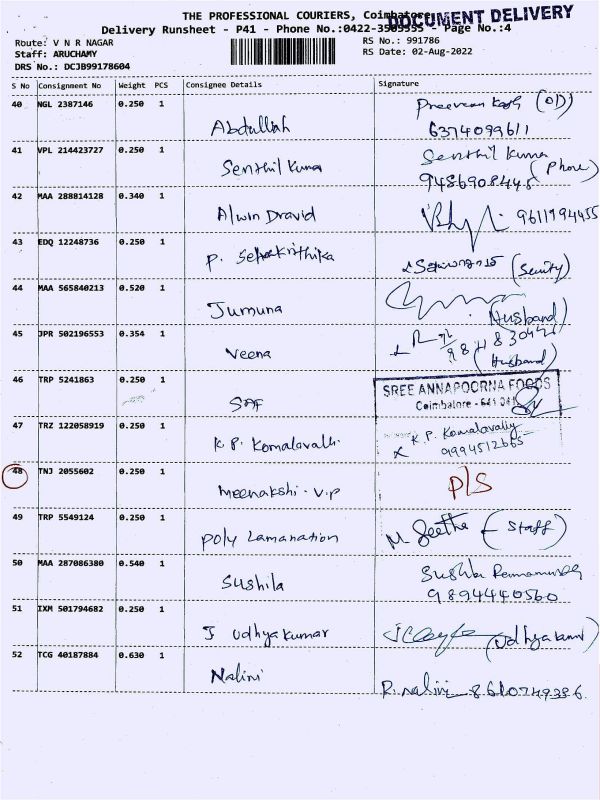 THE PROFESSIONAL COURIERS, Coimbatore
DOCUMENT DELIVERY
Delivery Runsheet - P41 - Phone No.:0422-3509555 - Page No.:4
Route: V N R NAGAR
RS No.: 991786
Staff: ARUCHAMY
RS Date: 02-Aug-2022
DRS No.: DCJB99178604
S No Consignment No Weight PCS Consignee Details Signature
40 NGL 2387146 0.250 1 (OD)
Abdullah 6374099611
41 VPL 214423727 0.250 1 Senthil Kumar
Senthil Kumar (Phone)
9486908448
42 MAA 288814128 0.340 1
Alwin Dravid 9611194455
43 EDQ 12248736 0.250 1
P.
44 MAA 565840213 0.520 1
Jumuna (Husband)
45 JPR 502196553 0.354 1
Veena (Husband)
46 TRP 5241863 0.250 1 SREE ANNAPOORNA FOODS
Coimbatore - 641 041
47 TRZ 122058919 0.250 1 K.P. Komalavally
K.P. Komalavalli 9994512665
48 TNJ 2055602 0.250 1 P/S
Meenakshi . V.P
49 TRP 5549124 0.250 1
Poly Lamanation M. Geetha (Staff)
50 MAA 287086380 0.540 1 Sushila
Sushila 9894440560
51 IXM 501794682 0.250 1
J Udhyakumar (Udhyakumar)
52 TCG 40187884 0.630 1
Nalini R. Nalini 8610749386